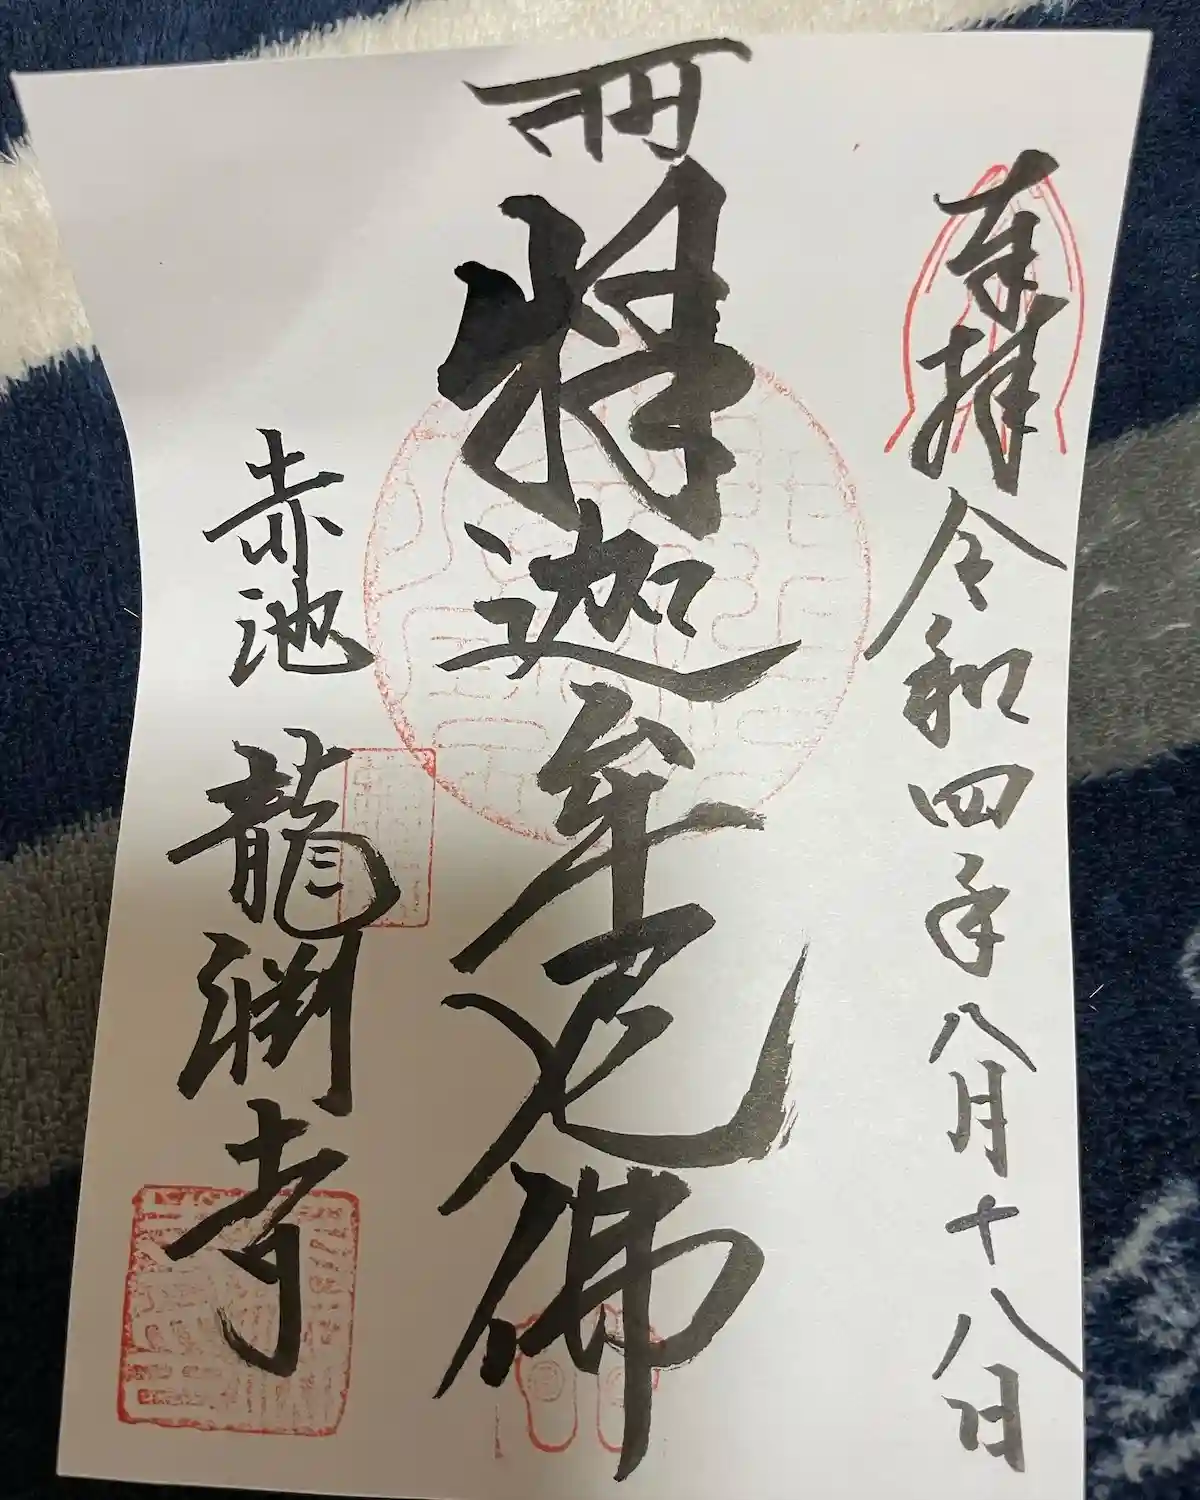 奉拝 令和四年八月十八日
釋迦牟尼佛
赤池 龍渕寺